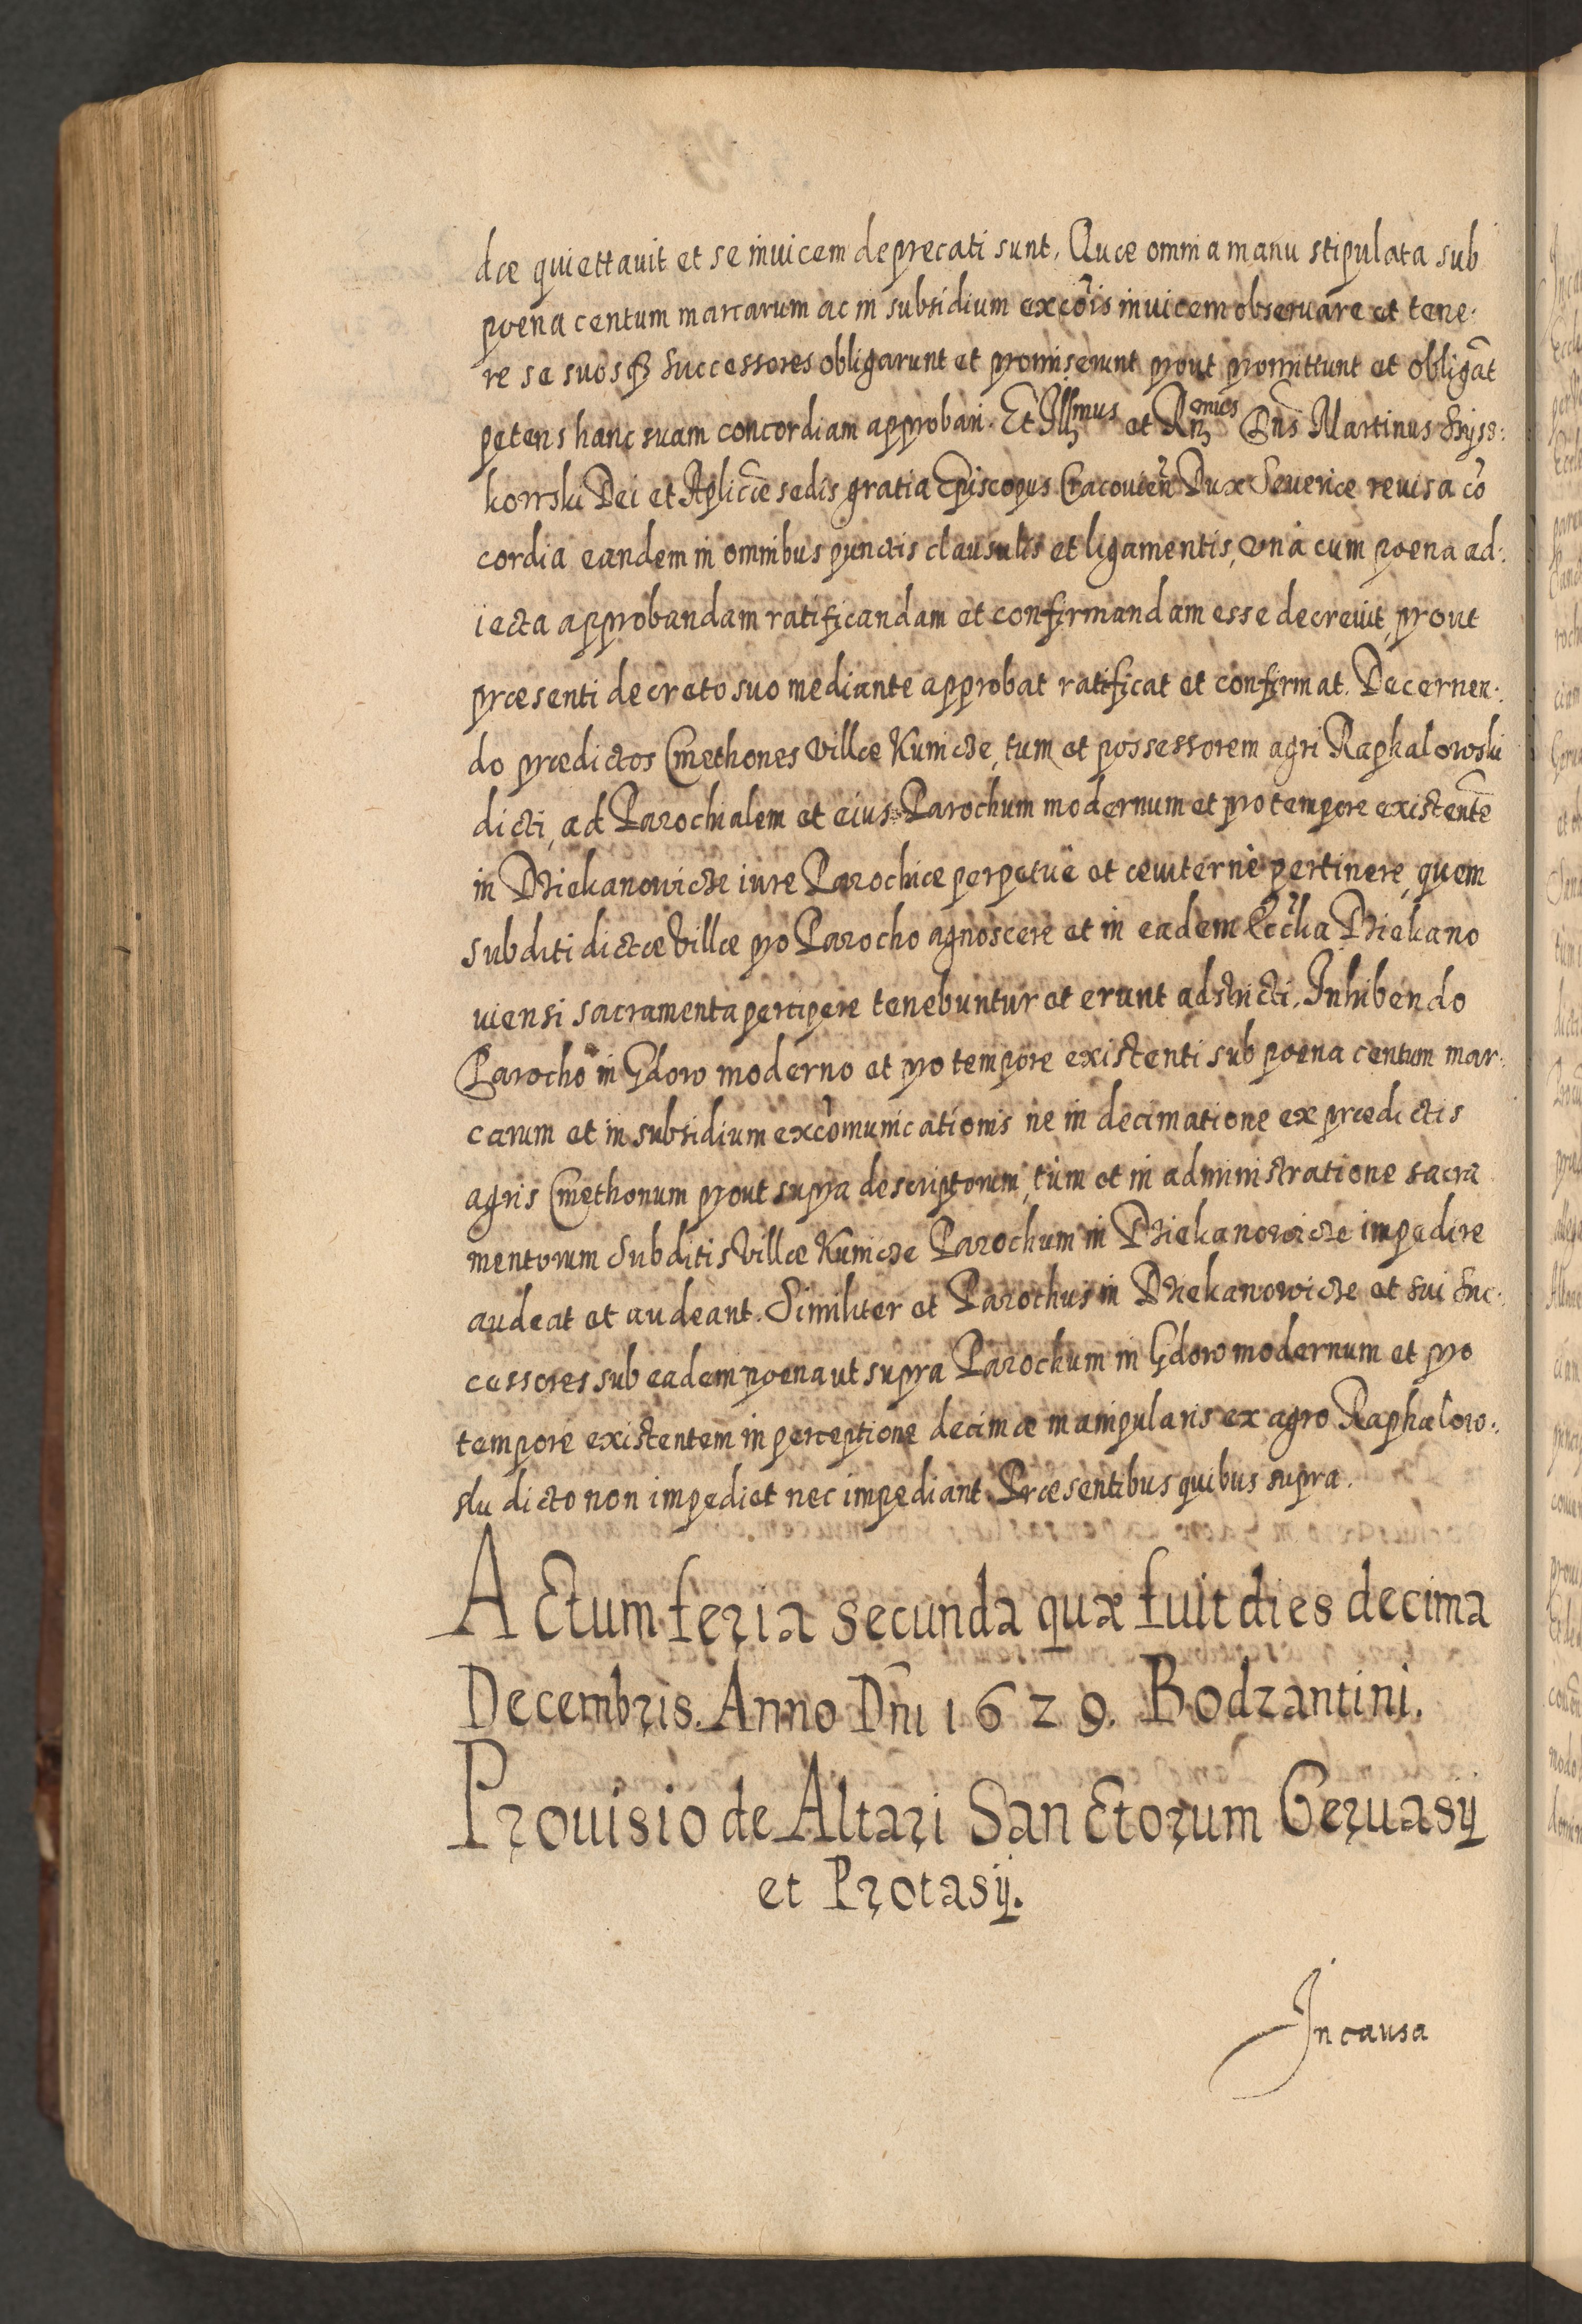 dæ quiettauit et se inuicem deprecati sunt. Quæ omnia manu stipulata sub
poena centum marcarum ac in subsidium excõis inuicem obseruare et tene:
re se suosqꝫ Successores obligarunt et promiserunt prout promittunt et obligãt
petens hanc suam concordiam approbari. Et Illꝫmus et Rnꝫmus Dñs Martinus Szysz:
kowski Dei et Aplicæ sedis gratia Episcopus Cracouieñ Dux Seueriæ reuisa cõ
cordia eandem in omnibus punctis clausulis et ligamentis, vnà cum poena ad:
iecta approbandam ratificandam et confirmandam esse decreuit, prout
præsenti decreto suo mediante approbat ratificat et confirmat. Decernen:
do prædictos Cmethones villæ Kunicze, tum et possessorem agri Raphalowski
dicti, ad Parochialem et eius Parochum modernum et pro tempore existentẽ
in Dziekanowicze iure Parochiæ perpetuè et æuiternè pertinere, quem
subditi dictæ villæ pro Parocho agnoscere et in eadem Eccła Dziekano
uiensi sacramenta percipere tenebuntur et erunt adstricti. Inhibendo
Parocho in Gdow moderno et pro tempore existenti sub poena centum mar:
carum et in subsidium excõmunicationis ne in decimatione ex prædictis
agris Cmethonum prout supra descriptorum, tùm et in administratione sacra
mentorum Subditis Villæ Kunicze Parochum in Dziekanowicze impedire
audeat et audeant. Similiter et Parochus in Dziekanowicze et sui Suc:
cessores sub eadem poena ut supra Parochum in Gdow modernum et pro
tempore existentem in perceptione decimæ manipularis ex agro Raphalow:
ski dicto non impediet nec impediant. Præsentibus quibus supra.
Actum feria secunda quæ fuit dies decima
Decembris. Anno Dñi 1629. Bodzantini.
Prouisio de Altari Sanctorum Geruasij
et Protasij.
In causa